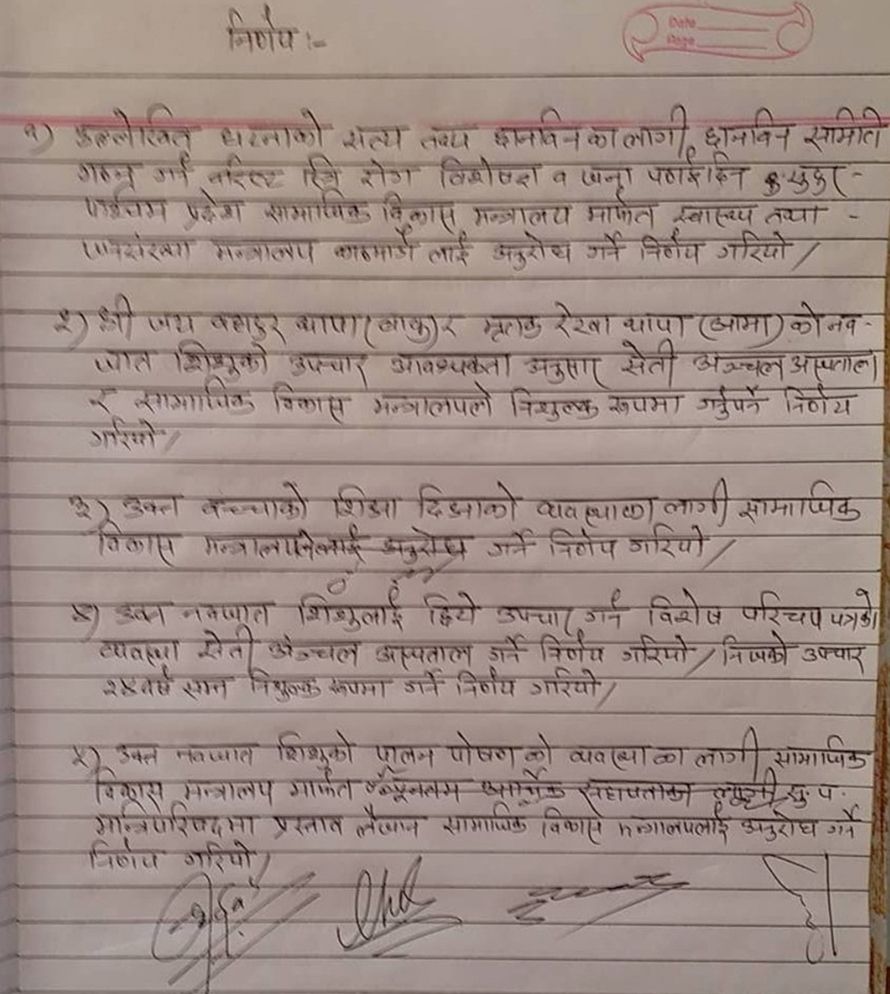 निर्णय :-
Date
Page
१) उल्लेखित घटनाको सत्य तथ्य छानविनका लागी छानविन समिति
गठन गर्न वरिष्ट स्त्रि रोग विशेषज्ञ व खन्ना पठाईदिन सुदुर-
पश्चिम प्रदेश सामाजिक विकास मन्त्रालय मार्फत स्वास्थ्य तथा -
जनसंख्या मन्त्रालय काठमाडौं लाई अनुरोध गर्ने निर्णय गरियो /
२) श्री जय बहादुर थापा (बाबु) र मृतक रेखा थापा (आमा) को नव-
जात शिशुको उपचार आवश्यकता अनुसार सेती अञ्चल अस्पताल
र सामाजिक विकास मन्त्रालयले निशुल्क रूपमा गर्नुपर्ने निर्णय
गरियो /
३) उक्त बच्चाको शिक्षा दिक्षाको व्यवस्थाका लागी सामाजिक
विकास मन्त्रालयलाई अनुरोध गर्ने निर्णय गरियो /
४) उक्त नवजात शिशुलाई छिटो उपचार गर्न विशेष परिचय पत्रको
व्यवस्था सेती अञ्चल अस्पताल गर्ने निर्णय गरियो / निजको उपचार
१४ वर्ष सम्म निशुल्क रूपमा गर्ने निर्णय गरियो /
५) उक्त नवजात शिशुको पालन पोषणको व्यवस्थाका लागी सामाजिक
विकास मन्त्रालय मार्फत न्यूनतम आर्थिक सहायताका लागी सु. प.
मन्त्रिपरिषदमा प्रस्ताव लैजान सामाजिक विकास मन्त्रालयलाई अनुरोध गर्ने
निर्णय गरियो /